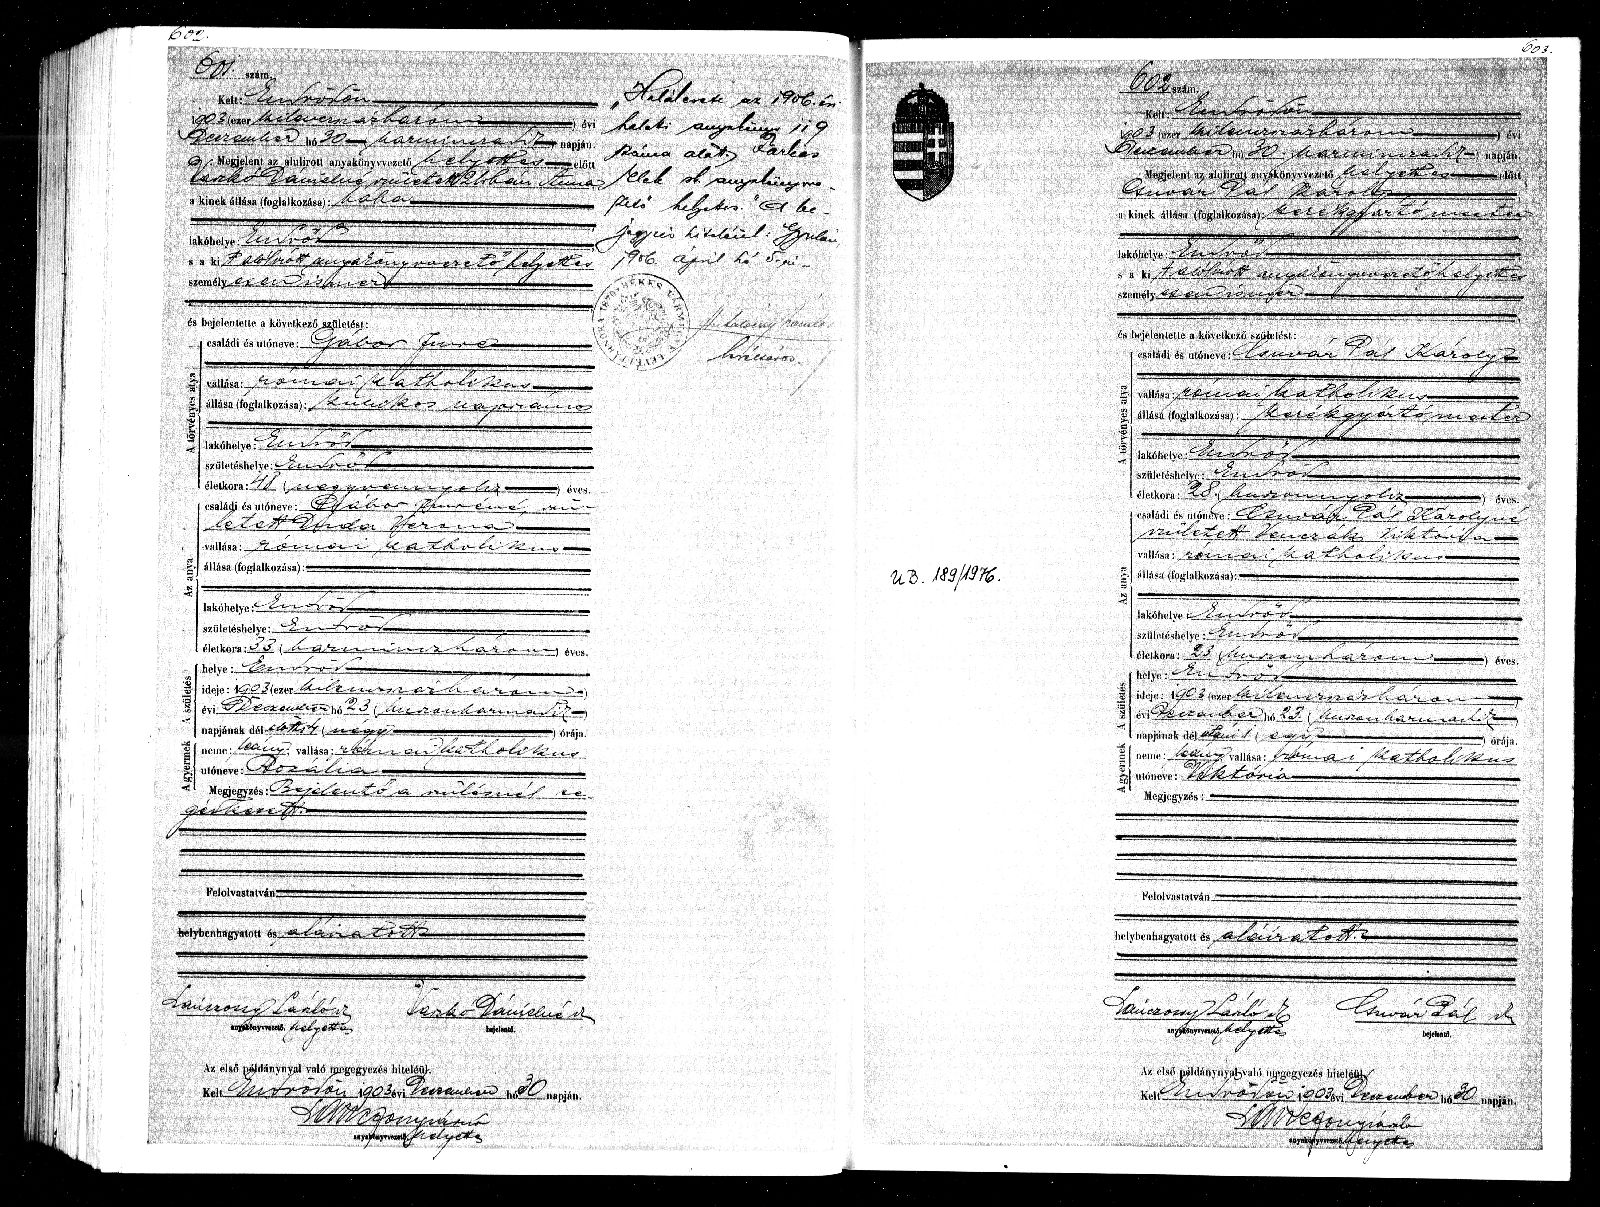 602.
601. szám.
Kelt: Endrődön
1903 (ezer kilencszázhárom) évi
Dezember hó 30 harmincadik napján.
Megjelent az alulirott anyakönyvvezető helyettes előtt
Vaszkó Dánielné, született Urbán Anna
a kinek állása (foglalkozása): bába
lakóhelye: Endrőd
s a kit alólirott anyakönyvvezető helyettes
személyesen ismer
és bejelentette a következő születést:
A törvényes atya
családi és utóneve: Gábor Imre
vallása: római katholikus
állása (foglalkozása): kubikos napszámos
lakóhelye: Endrőd
születéshelye: Endrőd
életkora: 48 (negyvennyolcz) éves.
Az anya
családi és utóneve: Gábor Imréné, szü-
letett Duda Verona
vallása: római katholikus
állása (foglalkozása):
lakóhelye: Endrőd
születéshelye: Endrőd
életkora: 33 (harminczhárom) éves.
A születés
helye: Endrőd
ideje: 1903 (ezer kilencszázhárom)
évi Dezember hó 23 (huszonharmadik)
napjának délelőtt 4 (négy) órája.
A gyermek
neme: leány; vallása: római katholikus
utóneve: Rozália
Megjegyzés: Bejelentő a szülésnél se-
gédkezett.
Felolvastatván
helybenhagyatott és aláiratott
Lánczonyi László Vaszkó Dánielné
anyakönyvvezető helyettes bejelentő.
Az első példánynyal való megegyezés hiteléül.
Kelt Endrődön 1903 évi Dezember hó 30 napján.
anyakönyvvezető helyettes
"Halálesete az 1906. évi
halotti anyakönyv 119
száma alatt. Farkas
Elek sk anyakönyvve-
zető helyettes." A be-
jegyzés hiteléül: Gyulán,
1906. április hó 5-én
603.
602 szám.
Kelt: Endrődön
1903 (ezer kilencszázhárom) évi
Dezember hó 30. harmincadik napján.
Megjelent az alulirott anyakönyvvezető helyettes előtt
Csuvár Pál Károly
a kinek állása (foglalkozása): kerékgyártó mester
lakóhelye: Endrőd
s a kit alólirott anyakönyvvezető helyettes
személyesen ismer
és bejelentette a következő születést:
A törvényes atya
családi és utóneve: Csuvár Pál Károly
vallása: római katholikus
állása (foglalkozása): kerékgyártó mester
lakóhelye: Endrőd
születéshelye: Endrőd
életkora: 28. (huszonnyolcz) éves.
Az anya
családi és utóneve: Csuvár Pál Károlyné
született Venczák Viktória
vallása: római katholikus
állása (foglalkozása):
lakóhelye: Endrőd
születéshelye: Endrőd
életkora: 23 (huszonhárom) éves.
A születés
helye: Endrőd
ideje: 1903 (ezer kilencszázhárom)
évi Dezember hó 23. (huszonharmadik)
napjának délelőtt 1 (egy) órája.
A gyermek
neme: leány vallása: római katholikus
utóneve: Viktória
Megjegyzés:
Felolvastatván
helybenhagyatott és aláiratott.
Lánczonyi László Csuvár Pál
anyakönyvvezető helyettes bejelentő.
Az első példánynyal való megegyezés hiteléül.
Kelt Endrődön 1903 évi Dezember hó 30 napján.
anyakönyvvezető helyettes
UB. 189/1976.